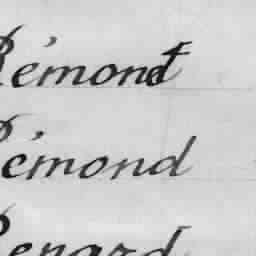 Rémond
Rémond
Renard